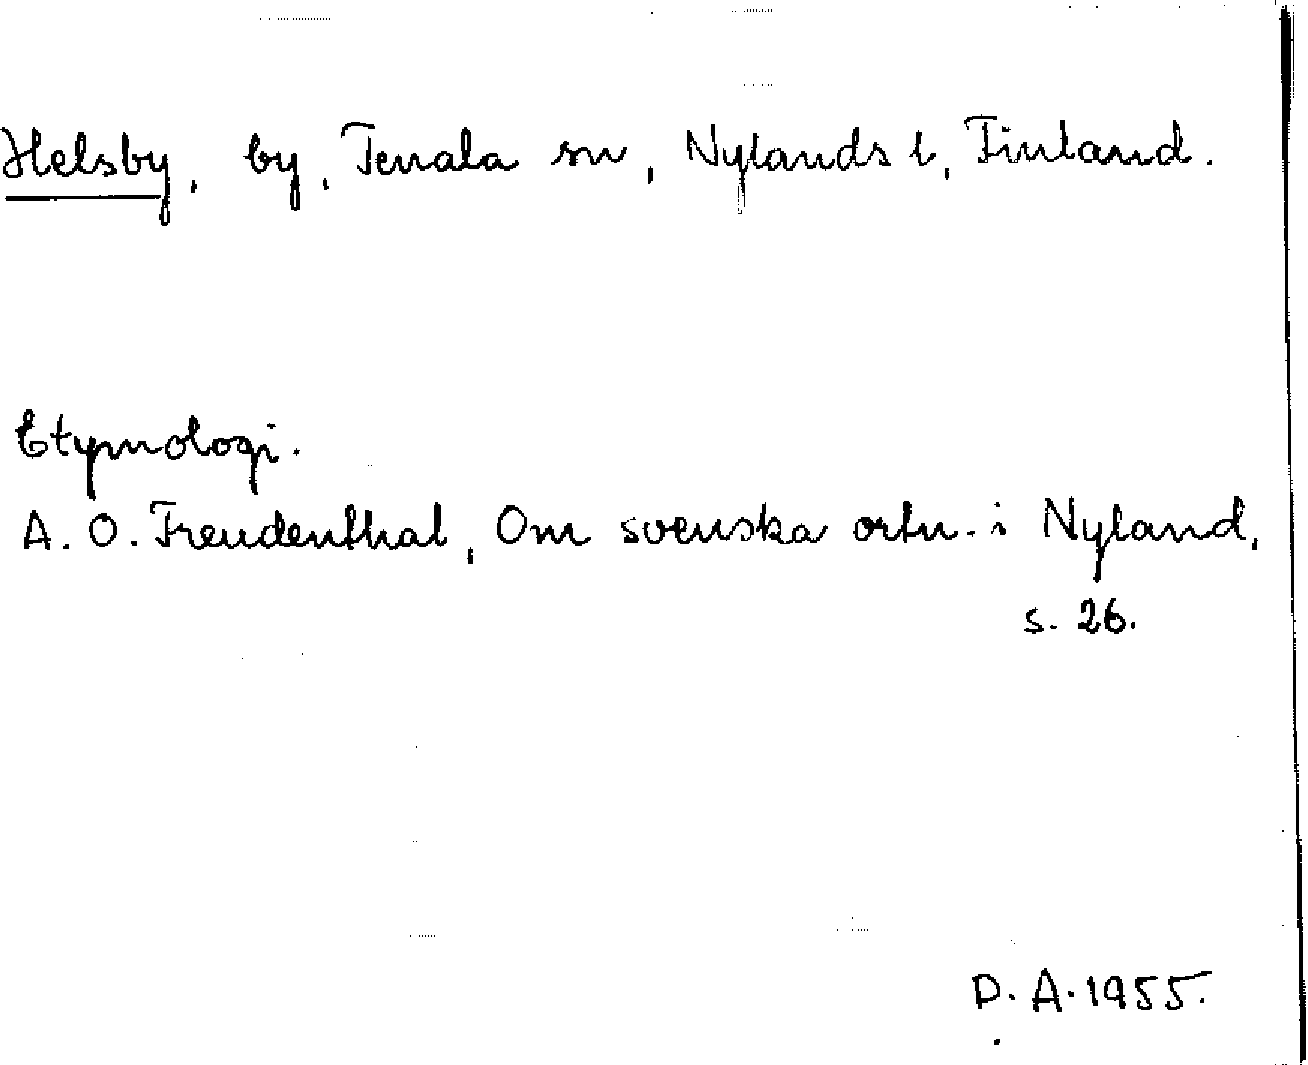 Helsby, by, Tenala sn, Nylands l, Finland.
Etymologi.
A. O. Freudenthal, Om svenska ortn. i Nyland,
s. 26.
D. A. 1955.